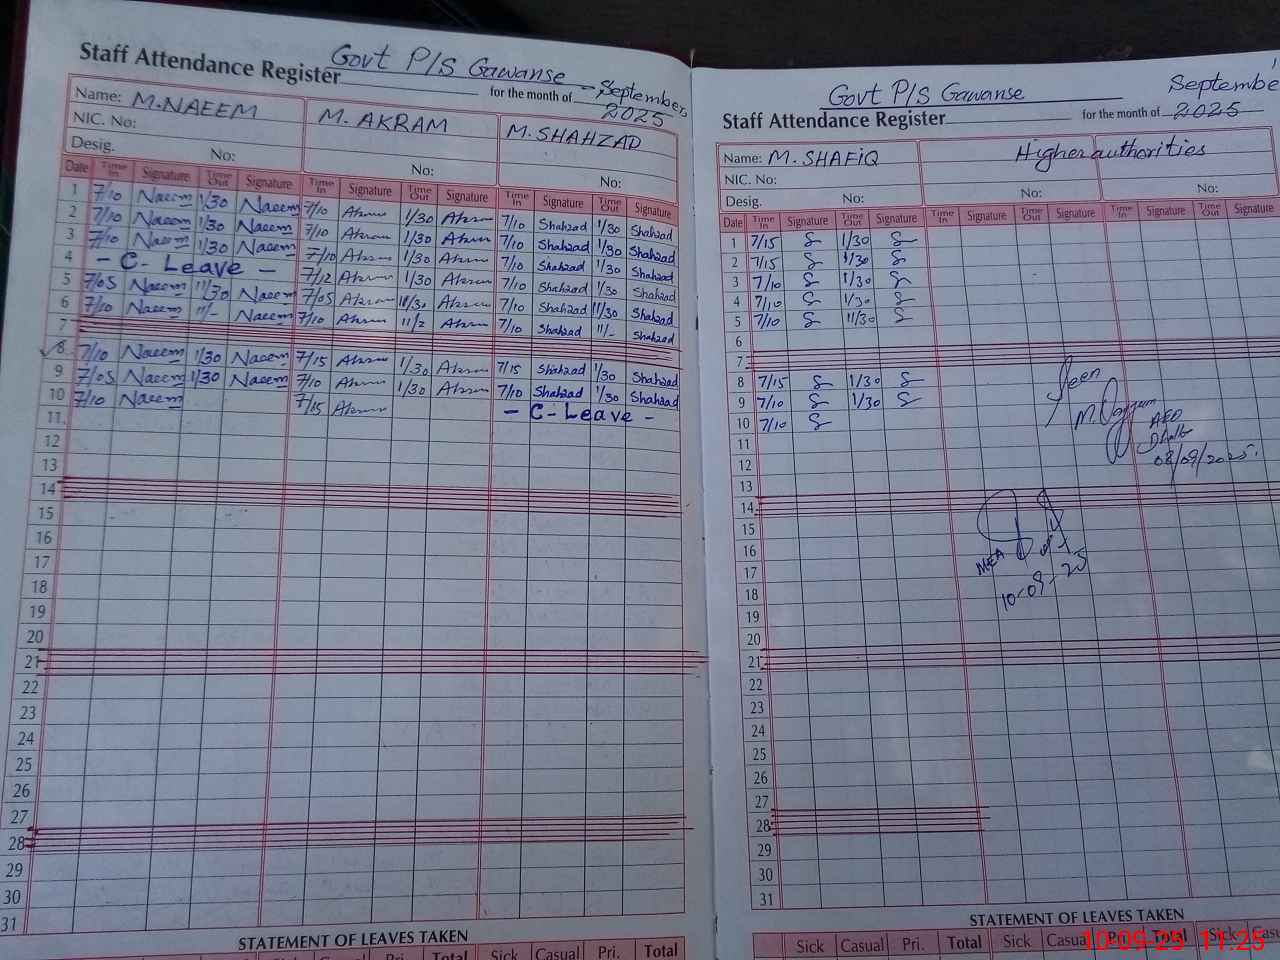 Govt P/S Gawanse
Staff Attendance Register for the month of September, 2025
Name: M. NAEEM M. AKRAM M. SHAHZAD
NIC. No:
Desig. No: No: No:
Date Time In Signature Time Out Signature Time In Signature Time Out Signature Time In Signature Time Out Signature
1 7/10 Naeem 1/30 Naeem 7/10 Akram 1/30 Akram 7/10 Shahzad 1/30 Shahzad
2 7/10 Naeem 1/30 Naeem 7/10 Akram 1/30 Akram 7/10 Shahzad 1/30 Shahzad
3 7/10 Naeem 1/30 Naeem 7/10 Akram 1/30 Akram 7/10 Shahzad 1/30 Shahzad
4 - C- Leave - 7/12 Akram 1/30 Akram 7/10 Shahzad 1/30 Shahzad
5 7/05 Naeem 11/30 Naeem 7/05 Akram 11/30 Akram 7/10 Shahzad 11/30 Shahzad
6 7/10 Naeem 11/- Naeem 7/10 Akram 11/2 Akram 7/10 Shahzad 11/- Shahzad
7
8 7/10 Naeem 1/30 Naeem 7/15 Akram 1/30 Akram 7/15 Shahzad 1/30 Shahzad
9 7/05 Naeem 1/30 Naeem 7/10 Akram 1/30 Akram 7/10 Shahzad 1/30 Shahzad
10 7/10 Naeem 7/15 Akram - C- Leave -
11
12
13
14
15
16
17
18
19
20
21
22
23
24
25
26
27
28
29
30
31
STATEMENT OF LEAVES TAKEN
Sick Casual Pri. Total
Govt P/S Gawanse
Staff Attendance Register for the month of September 2025
Name: M. SHAFIQ Higher authorities
NIC. No:
Desig. No: No: No:
Date Time In Signature Time Out Signature Time In Signature Time Out Signature Time In Signature Time Out Signature
1 7/15 S 1/30 S
2 7/15 S 1/30 S
3 7/10 S 1/30 S
4 7/10 S 1/30 S
5 7/10 S 11/30 S
6
7
8 7/15 S 1/30 S
9 7/10 S 1/30 S
10 7/10 S
11
12
13
14
15
16
17
18
19
20
21
22
23
24
25
26
27
28
29
30
31
Seen
M. Qayyum
AEO
08/09/2025.
MEA
10-09-25
STATEMENT OF LEAVES TAKEN
Sick Casual Pri. Total Sick Casual Pri. Total Sick Casu
10-09-25 11:25